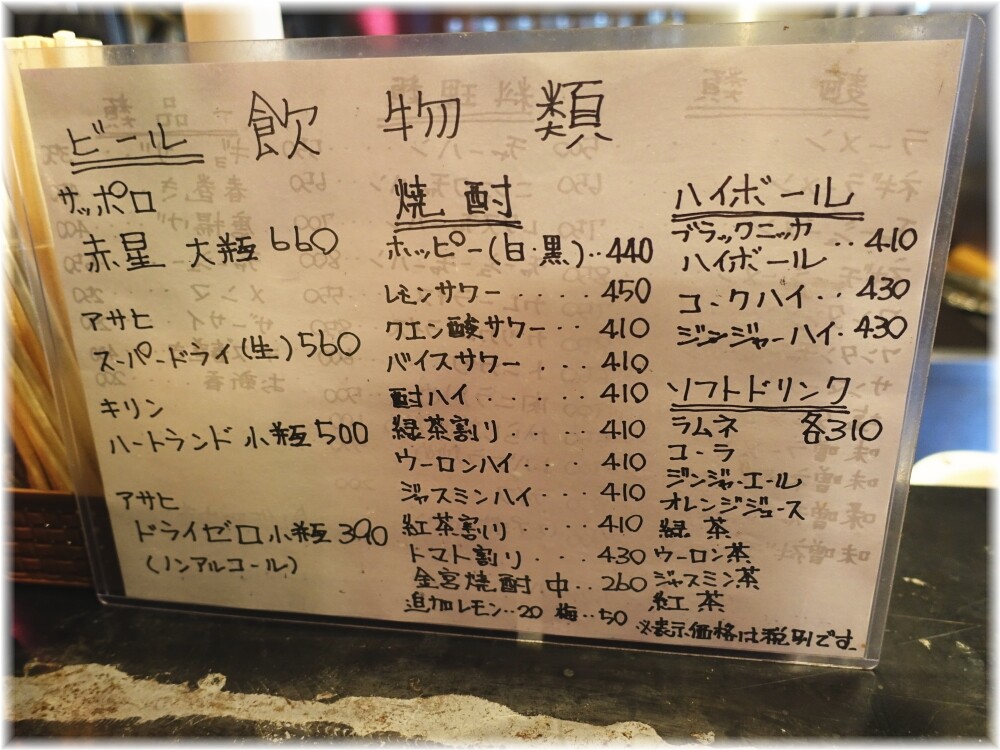 飲物類
ビール
サッポロ
赤星 大瓶 660
アサヒ
スーパードライ(生) 560
キリン
ハートランド 小瓶 500
アサヒ
ドライゼロ 小瓶 390
(ノンアルコール)
焼酎
ホッピー(白・黒)‥440
レモンサワー・・・・450
クエン酸サワー・・・410
バイスサワー・・・・410
酎ハイ・・・・410
緑茶割り・・・・410
ウーロンハイ・・・・410
ジャスミンハイ・・・410
紅茶割り・・・・410
トマト割り・・・430
金宮焼酎 中・・260
追加レモン‥20 梅‥50
ハイボール
ブラックニッカ
ハイボール ‥410
コークハイ‥430
ジンジャーハイ・430
ソフトドリンク
ラムネ 各310
コーラ
ジンジャーエール
オレンジジュース
緑茶
ウーロン茶
ジャスミン茶
紅茶
※表示価格は税別です。